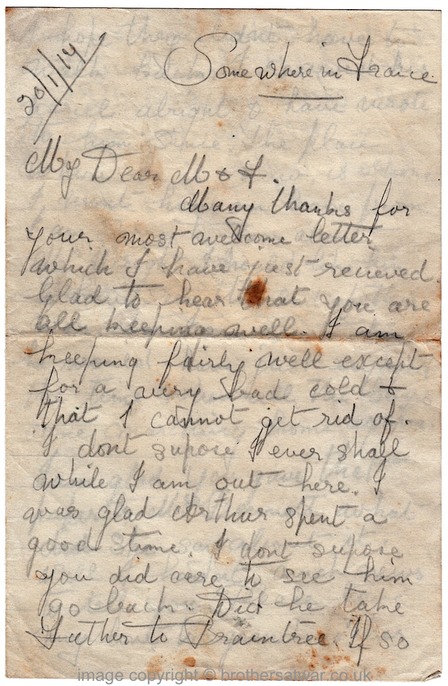 20/1/17
Somewhere in France
My Dear M & F.
Many thanks for
your most welcome letter
which I have just recieved.
Glad to hear that you are
all keeping well. I am
keeping fairly well except
for a very bad cold &
that I cannot get rid of.
I dont supose I ever shall
while I am out here. I
was glad Arthur spent a
good time. I dont supose
you did care to see him
go back. Did he take
Father to Braintree. If so
image copyright © brothersatwar.co.uk